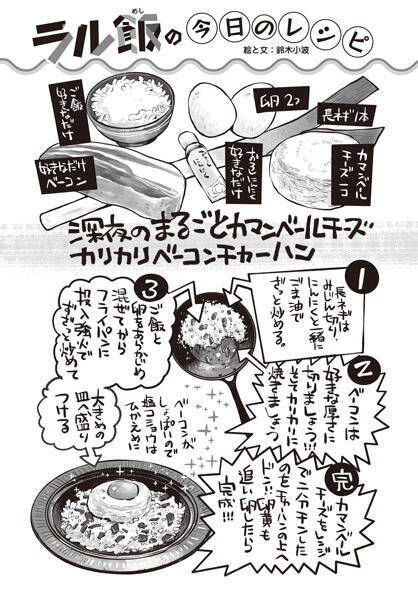 ラル飯の今日のレシピ
めし
絵と文：鈴木小波
ご飯
好きなだけ
卵2つ
長ネギ1本
好きなだけ
ベーコン
おろしにんにく
好きなだけ
カマンベール
チーズ一コ
深夜のまるごとカマンベールチーズ
カリカリベーコンチャーハン
1
長ネギは
みじん切り、
にんにくと一緒に
ごま油で
ざっと炒める。
2
ベーコンは
好きな厚さに
切りましょう!!
そしてカリカリに
焼きましょう
3
ご飯と
卵をあらかじめ
混ぜてから
フライパンに
投入強火で
ずざっと炒めて
ベーコンが
しょっぱいので
塩コショウは
ひかえめに
大きめの
皿へ盛り
つける
完
カマンベール
チーズをレンジ
で二分チンした
のをチャーハンの上へ
ドン!!卵黄も
追い卵したら
完成!!!